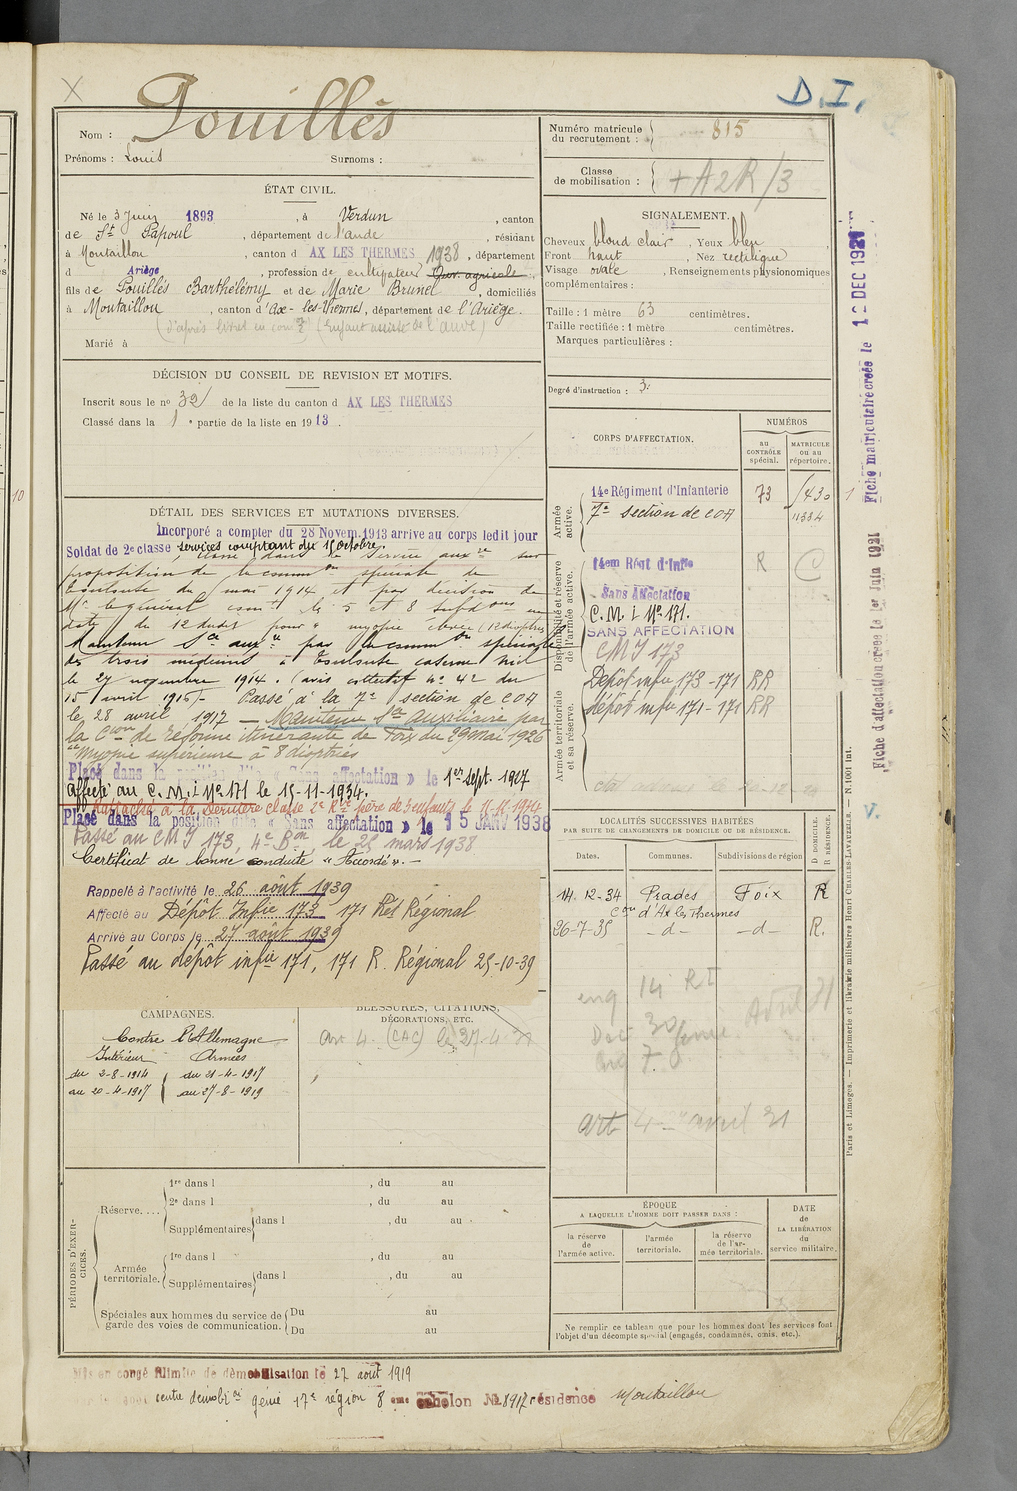 D.I.
Nom : Pouillès
Prénoms : Louis Surnoms :
Numéro matricule du recrutement : 815
Classe de mobilisation : +A2R/3
ÉTAT CIVIL.
Né le 3 Juin 1893, à Verdun, canton
de St Papoul, département de l'aude, résidant
à Montaillou, canton d AX LES THERMES 1938, département
d Ariège, profession de cultivateur Ouv. agricole
fils de Pouillés Barthélémy et de Marie Brunel, domiciliés
à Montaillou, canton d'Ax-les-Thermes, département de l'Ariège.
(Enfant assisté de l'aude)
Marié à
SIGNALEMENT.
Cheveux blond clair, Yeux bleu
Front haut, Nez rectiligne
Visage ovale, Renseignements physionomiques
complémentaires :
Taille : 1 mètre 63 centimètres.
Taille rectifiée : 1 mètre centimètres.
Marques particulières :
Degré d'instruction : 3.
DÉCISION DU CONSEIL DE REVISION ET MOTIFS.
Inscrit sous le no 32 de la liste du canton d AX LES THERMES
Classé dans la 1e partie de la liste en 1913.
DÉTAIL DES SERVICES ET MUTATIONS DIVERSES.
Incorporé a compter du 28 Novem. 1913 arrive au corps ledit jour
Soldat de 2e classe services comptant du 1 Octobre
Classé dans le service auxre sur
proposition de la common spéciale de
Toulouse du mai 1914 et par décision de
Mr le général comt les 5 et 8 subdons en
date du 12 dudit pour "myopie élevée (12 dioptries)
Maintenu Sce auxre par la common spéciale
des trois médecins à Toulouse caserne Niel
le 27 novembre 1914. (avis collectif no 42 du
15 avril 1915)- Passé à la 7e section de COA
le 28 avril 1917 — Maintenu Sce Auxiliaire par
la Cion de réforme itinérante de Foix du 29 mai 1926
"Myopie supérieure à 8 dioptries
Placé dans la position dite « Sans affectation » le 1er Sept. 1927
Affecté au C.M.I No 171 le 15-11-1934.
Rattaché à la Dernière classe 2e Rve père de 3 enfants le 11-11-1944
Placé dans la position dite « Sans affectation » le 15 JANV 1938
Passé au CMI 173, 4e Bon, le 25 mars 1938
Certificat de bonne conduite "Accordé". —
Rappelé à l'activité le 26 août 1939
Affecté au Dépôt Infie 173 171 Rgt Régional
Arrivé au Corps le 27 août 1939
Passé au dépôt infie 171, 171 R. Régional 25-10-39
CORPS D'AFFECTATION.
NUMÉROS
au CONTRÔLE spécial.
MATRICULE ou au répertoire.
Armée active.
14e Régiment d'Infanterie 73 430
7e section de COA 11334
Disponibilité et réserve de l'armée active.
14em Régt d'Infie R
Sans Affectation
C.M.I No 171.
SANS AFFECTATION
CMI 173
Armée territoriale et sa réserve.
Dépôt infie 173-171 RR
dépôt infie 171-171 RR
LOCALITÉS SUCCESSIVES HABITÉES
PAR SUITE DE CHANGEMENTS DE DOMICILE OU DE RÉSIDENCE.
Dates. Communes. Subdivisions de région D. DOMICILE. R. RÉSIDENCE.
14.12-34 Prades Foix R
Cton d'Ax les Thermes
26-7-35 -d- -d- R.
14 RI
avril 21
CAMPAGNES.
Contre l'Allemagne
Intérieur Armées
du 2-8-1914 du 21-4-1917
au 20-4-1917 au 27-8-1919
BLESSURES, CITATIONS,
DÉCORATIONS, ETC.
PÉRIODES D'EXERCICES.
Réserve....
1re dans l , du au
2e dans l , du au
Supplémentaires dans l , du au
Armée territoriale.
1re dans l , du au
Supplémentaires dans l , du au
Spéciales aux hommes du service de garde des voies de communication.
Du au
Du au
ÉPOQUE
A LAQUELLE L'HOMME DOIT PASSER DANS :
la réserve de l'armée active.
l'armée territoriale.
la réserve de l'armée territoriale.
DATE DE LA LIBÉRATION du service militaire.
Ne remplir ce tableau que pour les hommes dont les services font
l'objet d'un décompte spécial (engagés, condamnés, omis, etc.).
Mis en congé illimité de démobilisation le 27 août 1919
centre démobon génie 17e région 8eme échelon No 8917 résidence Montaillou
Fiche matriculaire créée le
Fiche d'affectation créée le 1er Juin 1921
Paris et Limoges. — Imprimerie et librairie militaires Henri CHARLES-LAVAUZELLE. — N. 1001 Int.
V.
10